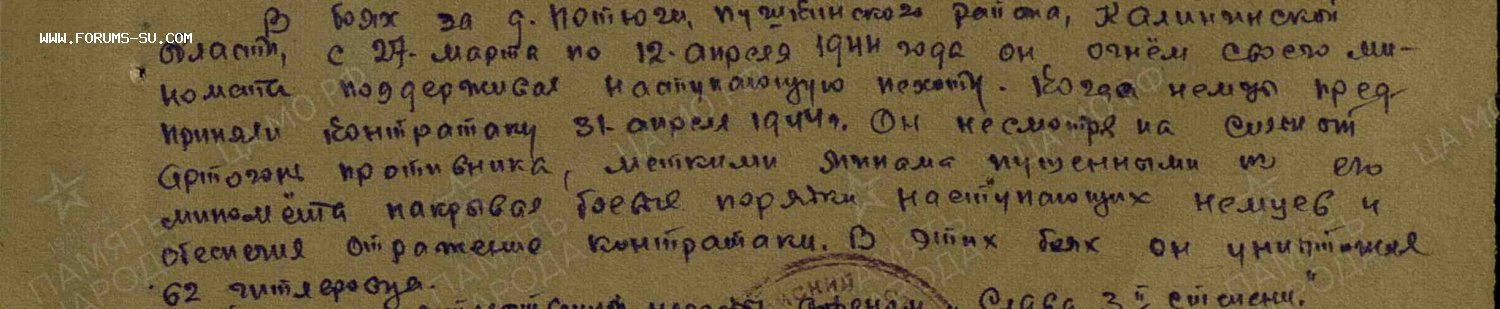 В боях за д. Потюги, пушкинского района, Калининской
WWW.FORUMS-SU.COM
области, с 27. марта по 12. апреля 1944 года он, огнём своего ми-
номёта поддерживая наступающую пехоту. Когда немцы пред
приняли контратаку 31. апреля 1944г. Он несмотря на
артогонь противника, меткими минами пущенными из его
миномёта накрывая боевые порядки наступающих немцев и
обеспечив отражение контратаки. В этих боях он уничтожил
62 гитлеровца.
Слава 3й степени."